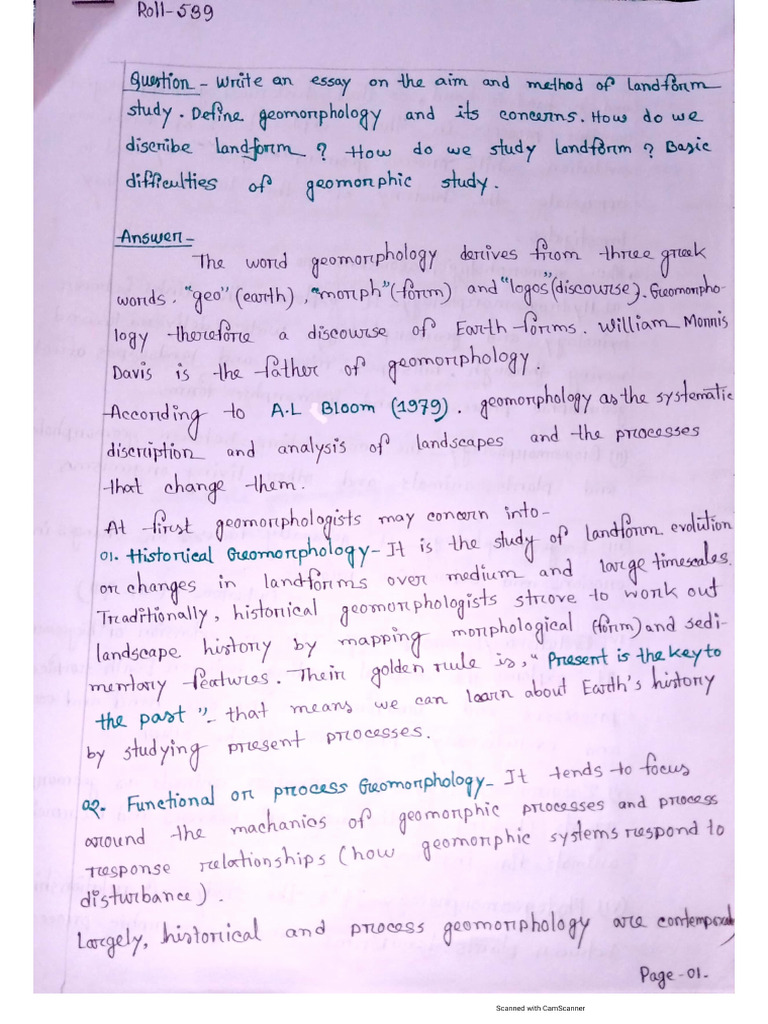 Roll-599
Question - Write an essay on the aim and method of landform
study. Define geomorphology and its concerns. How do we
discribe landform ? How do we study landform ? Basic
difficulties of geomorphic study.
Answer-
The word geomorphology derives from three greek
words. "geo" (earth), "morph" (form) and "logos" (discourse). Geomorpho-
logy therefore a discourse of Earth forms. William Morris
Davis is the father of geomorphology.
According to A.L Bloom (1979). geomorphology as the systematic
discription and analysis of landscapes and the processes
that change them.
At first geomorphologists may concern into-
01. Historical Geomorphology- It is the study of landform evolution
or changes in landforms over medium and large timescales.
Traditionally, historical geomorphologists strove to work out
landscape history by mapping morphological (form) and sedi-
mentary features. Their golden rule is, "Present is the key to
the past" - that means we can learn about Earth's history
by studying present processes.
02. Functional or process Geomorphology- It tends to focus
around the machanics of geomorphic processes and process
response relationships (how geomorphic systems respond to
disturbance).
Largely, historical and process geomorphology are
Page-01-
Scanned with CamScanner